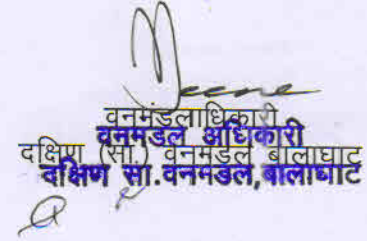 वनमंडलाधिकारी
वनमंडल अधिकारी
दक्षिण (सा.) वनमंडल बालाघाट
दक्षिण सा.वनमंडल, बालाघाट